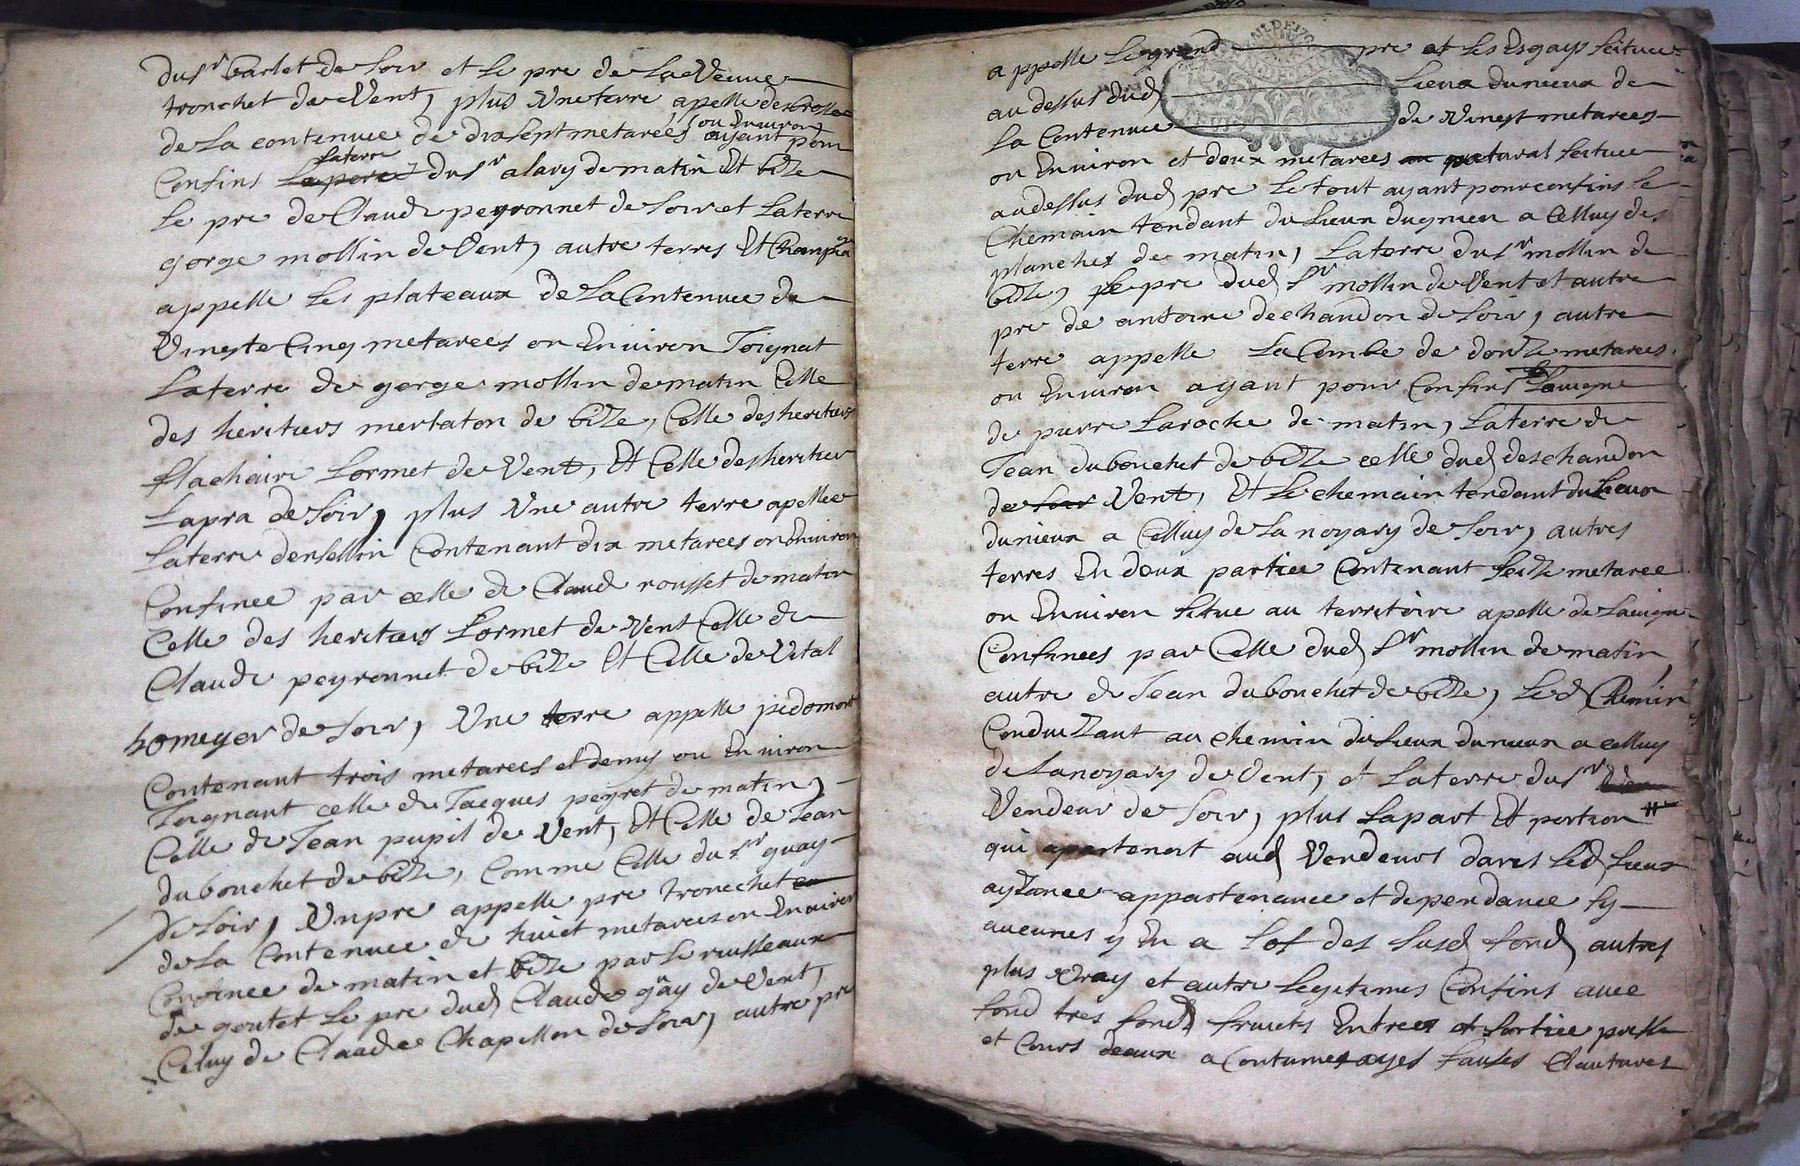 du sr Carlet de soir et le pre de la veuve
tronchet de vent, plus une terre apelle des brosses
de la contenue de dix sept metarées ou environ ayant pour
confins la terre du sr alary de matin et bize
le pre de Claude peyronnet de soir et la terre
george mollin de vent, autre terres et champéa
appelle les plateaux de la Contenue de
Vingte Cinq metarées ou Environ Joignat
la terre de george mollin de matin Celle
des heritiers mertaton de bize, Celle des heritiers
flachaire Lormet de vent, Et Celle des heritier
Lapra de soir, plus Une autre terre apellee
la terre Contenant dix metarees ou Environ
Confinee par celle de Claude rousset de matin
Celle des heritiers Lormet de vent Celle de
Claude peyronnet de bize Et Celle de Vital
homeyer de soir, Une terre appelle piedomont
Contenant trois metarees et demy ou Environ
Joignant celle de Jacques peyret de matin,
Celle de Jean pupil de vent, Et Celle de Jean
du bouchet de bize, Comme Celle du sr guay
de soir, Un pre appelle pre tronechet
de la Contenuee de huict metareez ou Environ
Confinee de matin et bize par le ruisseaux
de goutet le pre dud Claude gây de vent,
Celuy de Claude Chapellon de soir, autre pre
appelle le grand pre et les Esgays scituee
au dessus dud Lieux dunieux de
la Contenuee de Vingt metarees
ou Environ et deux metarees patural scituee
au dessus dud pre le tout ayant pour confins le
Chemain tendant du Lieux dugnieu a Celluy des
planches de matin, La terre du sr mollin de
bize, le pre dud sr mollin de vent et autre
pre de antoine dechandon de soir, autre
terre appelle la Combe de douze metarees
ou Environ ayant pour Confins la vigne
de pierre Laroche de matin, la terre de
Jean dubouchet de bize celle dud deschandon
de soir vent, Et le chemain tendant du Lieux
dunieux a Celluy de la noyary de soir, autres
terres En deux partiee Contenant seize metaree
ou Environ situe au territoire apelle de la vign
Confinees par Celle dud sr mollin de matin,
autre de Jean dubouchet de bize, led Chemin
Conduizant au chemin du Lieux dunieux a celluy
de la noyary de vent, et la terre du sr
Vendeur de soir, plus la part Et portion #
qui apartenost aud Vendeurs dans led Lieux
ayzance appartenance et dependance sy
aucunes y En a lof des susd fond autres
plus Vray et autre legitimes Confins avec
fond tres fond fruicts Entrees et sortiee
et Cours deaux acoutumes ayes Clautures